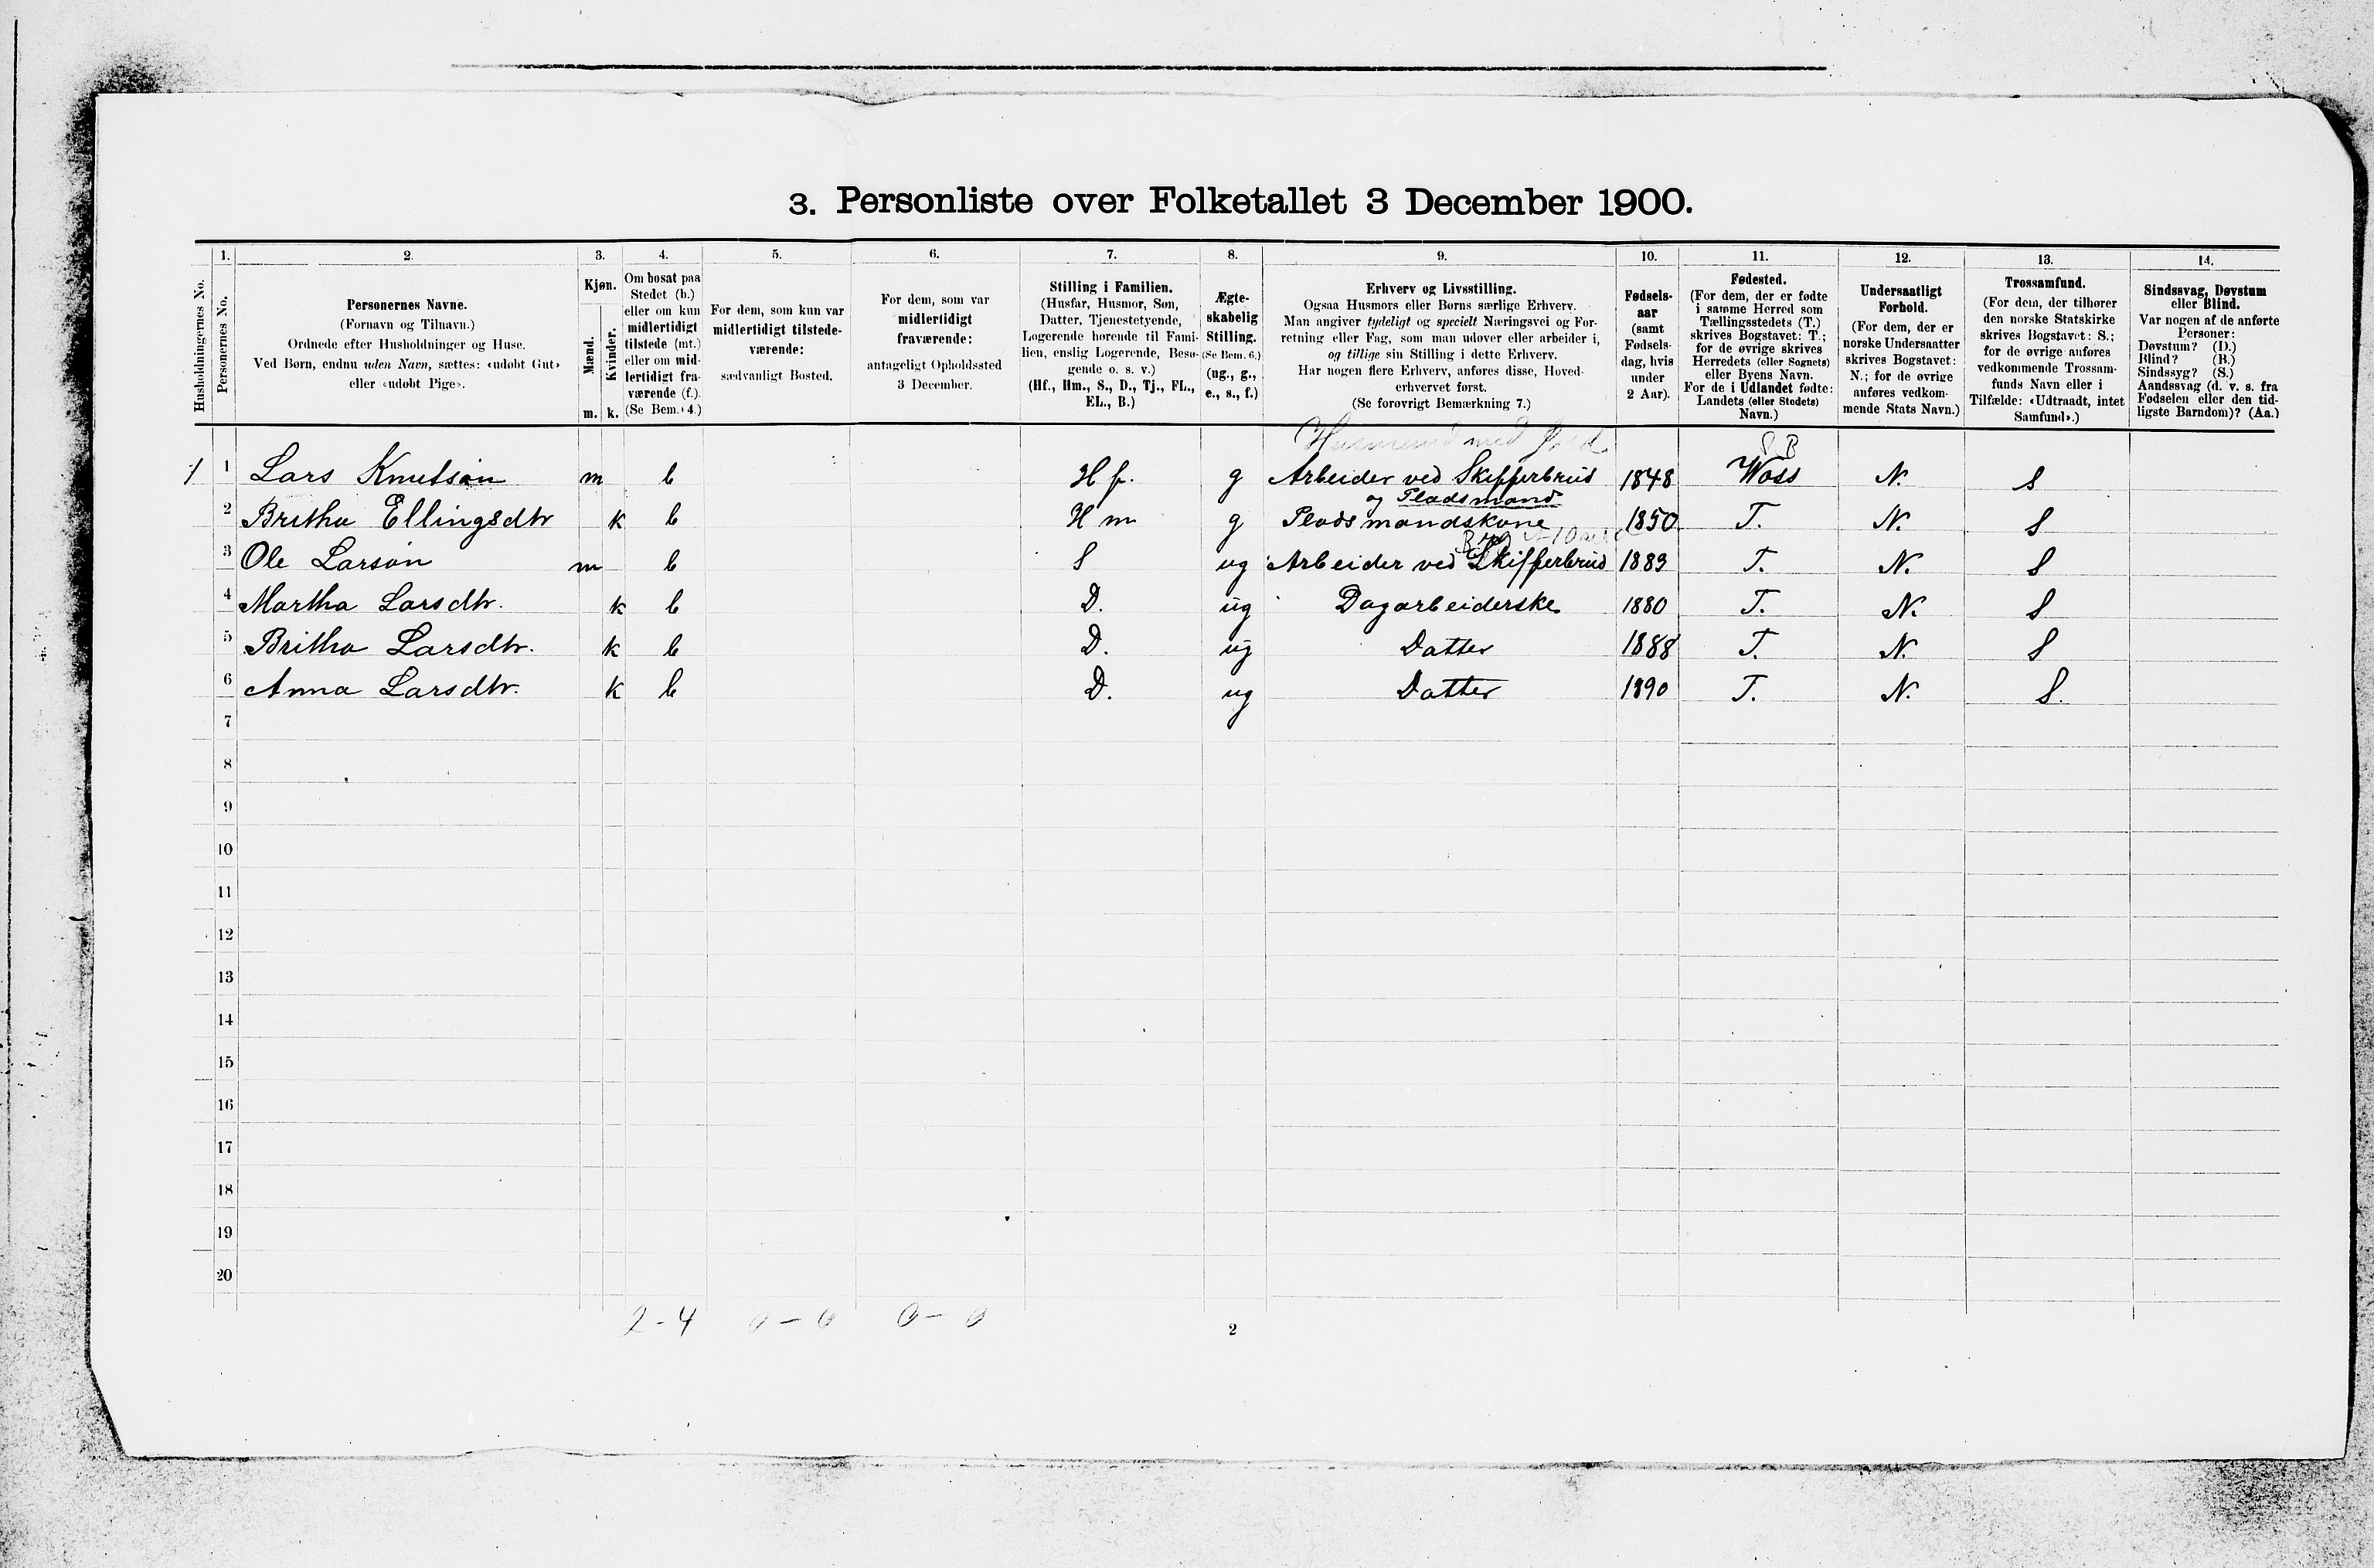 3. Personliste over Folketallet 3 December 1900.
Husholdningernes No.
1.
Personernes No.
2.
Personernes Navne.
(Fornavn og Tilnavn.)
Ordnede efter Husholdninger og Huse.
Ved Børn, endnu uden Navn, sættes: «udøbt Gut»
eller «udøbt Pige».
3.
Kjøn.
Mænd.
Kvinder.
m. k.
4.
Om bosat paa
Stedet (b.)
eller om kun
midlertidigt
tilstede (mt.)
eller om mid-
lertidigt fra-
værende (f.).
(Se Bem. 4.)
5.
For dem, som kun var
midlertidigt tilstede-
værende:
sædvanligt Bosted.
6.
For dem, som var
midlertidigt
fraværende:
antageligt Opholdssted
3 December.
7.
Stilling i Familien.
(Husfar, Husmor, Søn,
Datter, Tjenestetyende,
Logerende hørende til Fami-
lien, enslig Logerende, Besø-
gende o. s. v.)
(Hf., Hm., S., D., Tj., FL.,
EL., B.)
8.
Ægte-
skabelig
Stilling.
(Se Bem. 6.)
(ug., g.,
e., s., f.)
9.
Erhverv og Livsstilling.
Ogsaa Husmors eller Børns særlige Erhverv.
Man angiver tydeligt og specielt Næringsvei og For-
retning eller Fag, som man udøver eller arbeider i,
og tillige sin Stilling i dette Erhverv.
Har nogen flere Erhverv, anføres disse, Hoved-
erhvervet først.
(Se forøvrigt Bemærkning 7.)
10.
Fødsels-
aar
(samt
Fødsels-
dag, hvis
under
2 Aar).
11.
Fødested.
(For dem, der er fødte
i samme Herred som
Tællingsstedets (T.)
skrives Bogstavet: T.;
for de øvrige skrives
Herredets (eller Sognets)
eller Byens Navn.
For de i Udlandet fødte:
Landets (eller Stedets)
Navn.)
12.
Undersaatligt
Forhold.
(For dem, der er
norske Undersaatter
skrives Bogstavet:
N.; for de øvrige
anføres vedkom-
mende Stats Navn.)
13.
Trossamfund.
(For dem, der tilhører
den norske Statskirke
skrives Bogstavet: S.;
for de øvrige anføres
vedkommende Trossam-
funds Navn eller i
Tilfælde: «Udtraadt, intet
Samfund».)
14.
Sindssvag, Døvstum
eller Blind.
Var nogen af de anførte
Personer:
Døvstum? (D.)
Blind? (B.)
Sindssyg? (S.)
Aandssvag (d. v. s. fra
Fødselen eller den tid-
ligste Barndom)? (Aa.)
Husmand med Jord
S B
1 1 Lars Knutson m b Hf. g Arbeider ved Skifferbrud 1848 Woss N. S
og Pladsmand
2 Britha Ellingsdtr k b Hm g Pladsmandskone 1850 T. N. S
3 Ole Larson m b S ug Arbeider ved Skifferbrud 1883 T. N. S
4 Martha Larsdtr. k b D. ug Dagarbeiderske 1880 T. N. S
5 Britha Larsdtr. k b D. ug Datter 1888 T. N. S
6 Anna Larsdtr. k b D. ug Datter 1890 T. N. S.
7
8
9
10
11
12
13
14
15
16
17
18
19
20
2-4 0-0 0-0
2